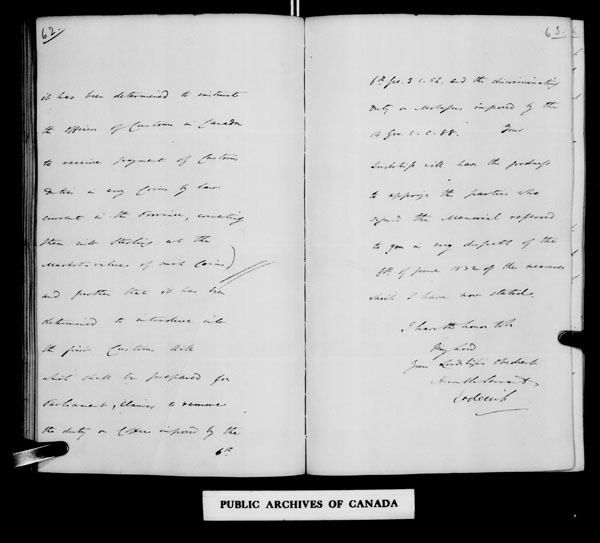 62.
it has been determined to instruct
the Officers of Customs in Canada
to receive payment of Custom
duties in any Coins by law
current in the Province, converting
them into Sterling at the
Market value of such Coins)
and further that it has been
determined to introduce into
the first Customs Bill
which shall be prepared for
Parliament, Clauses to remove
the duty on Coffee imposed by the
6th
63.
6th Geo. 3 c. 52. and the discriminating
duty on Molasses imposed by the
14 Geo. 3. c. 88. Your
Lordship will have the goodness
to apprize the parties who
signed the Memorial referred
to you in my dispatch of the
of June 1832 of the measures
which I have now stated.
I have the honor to be
My Lord
Your Lordship's obedient
Humble Servant
Goderich
PUBLIC ARCHIVES OF CANADA